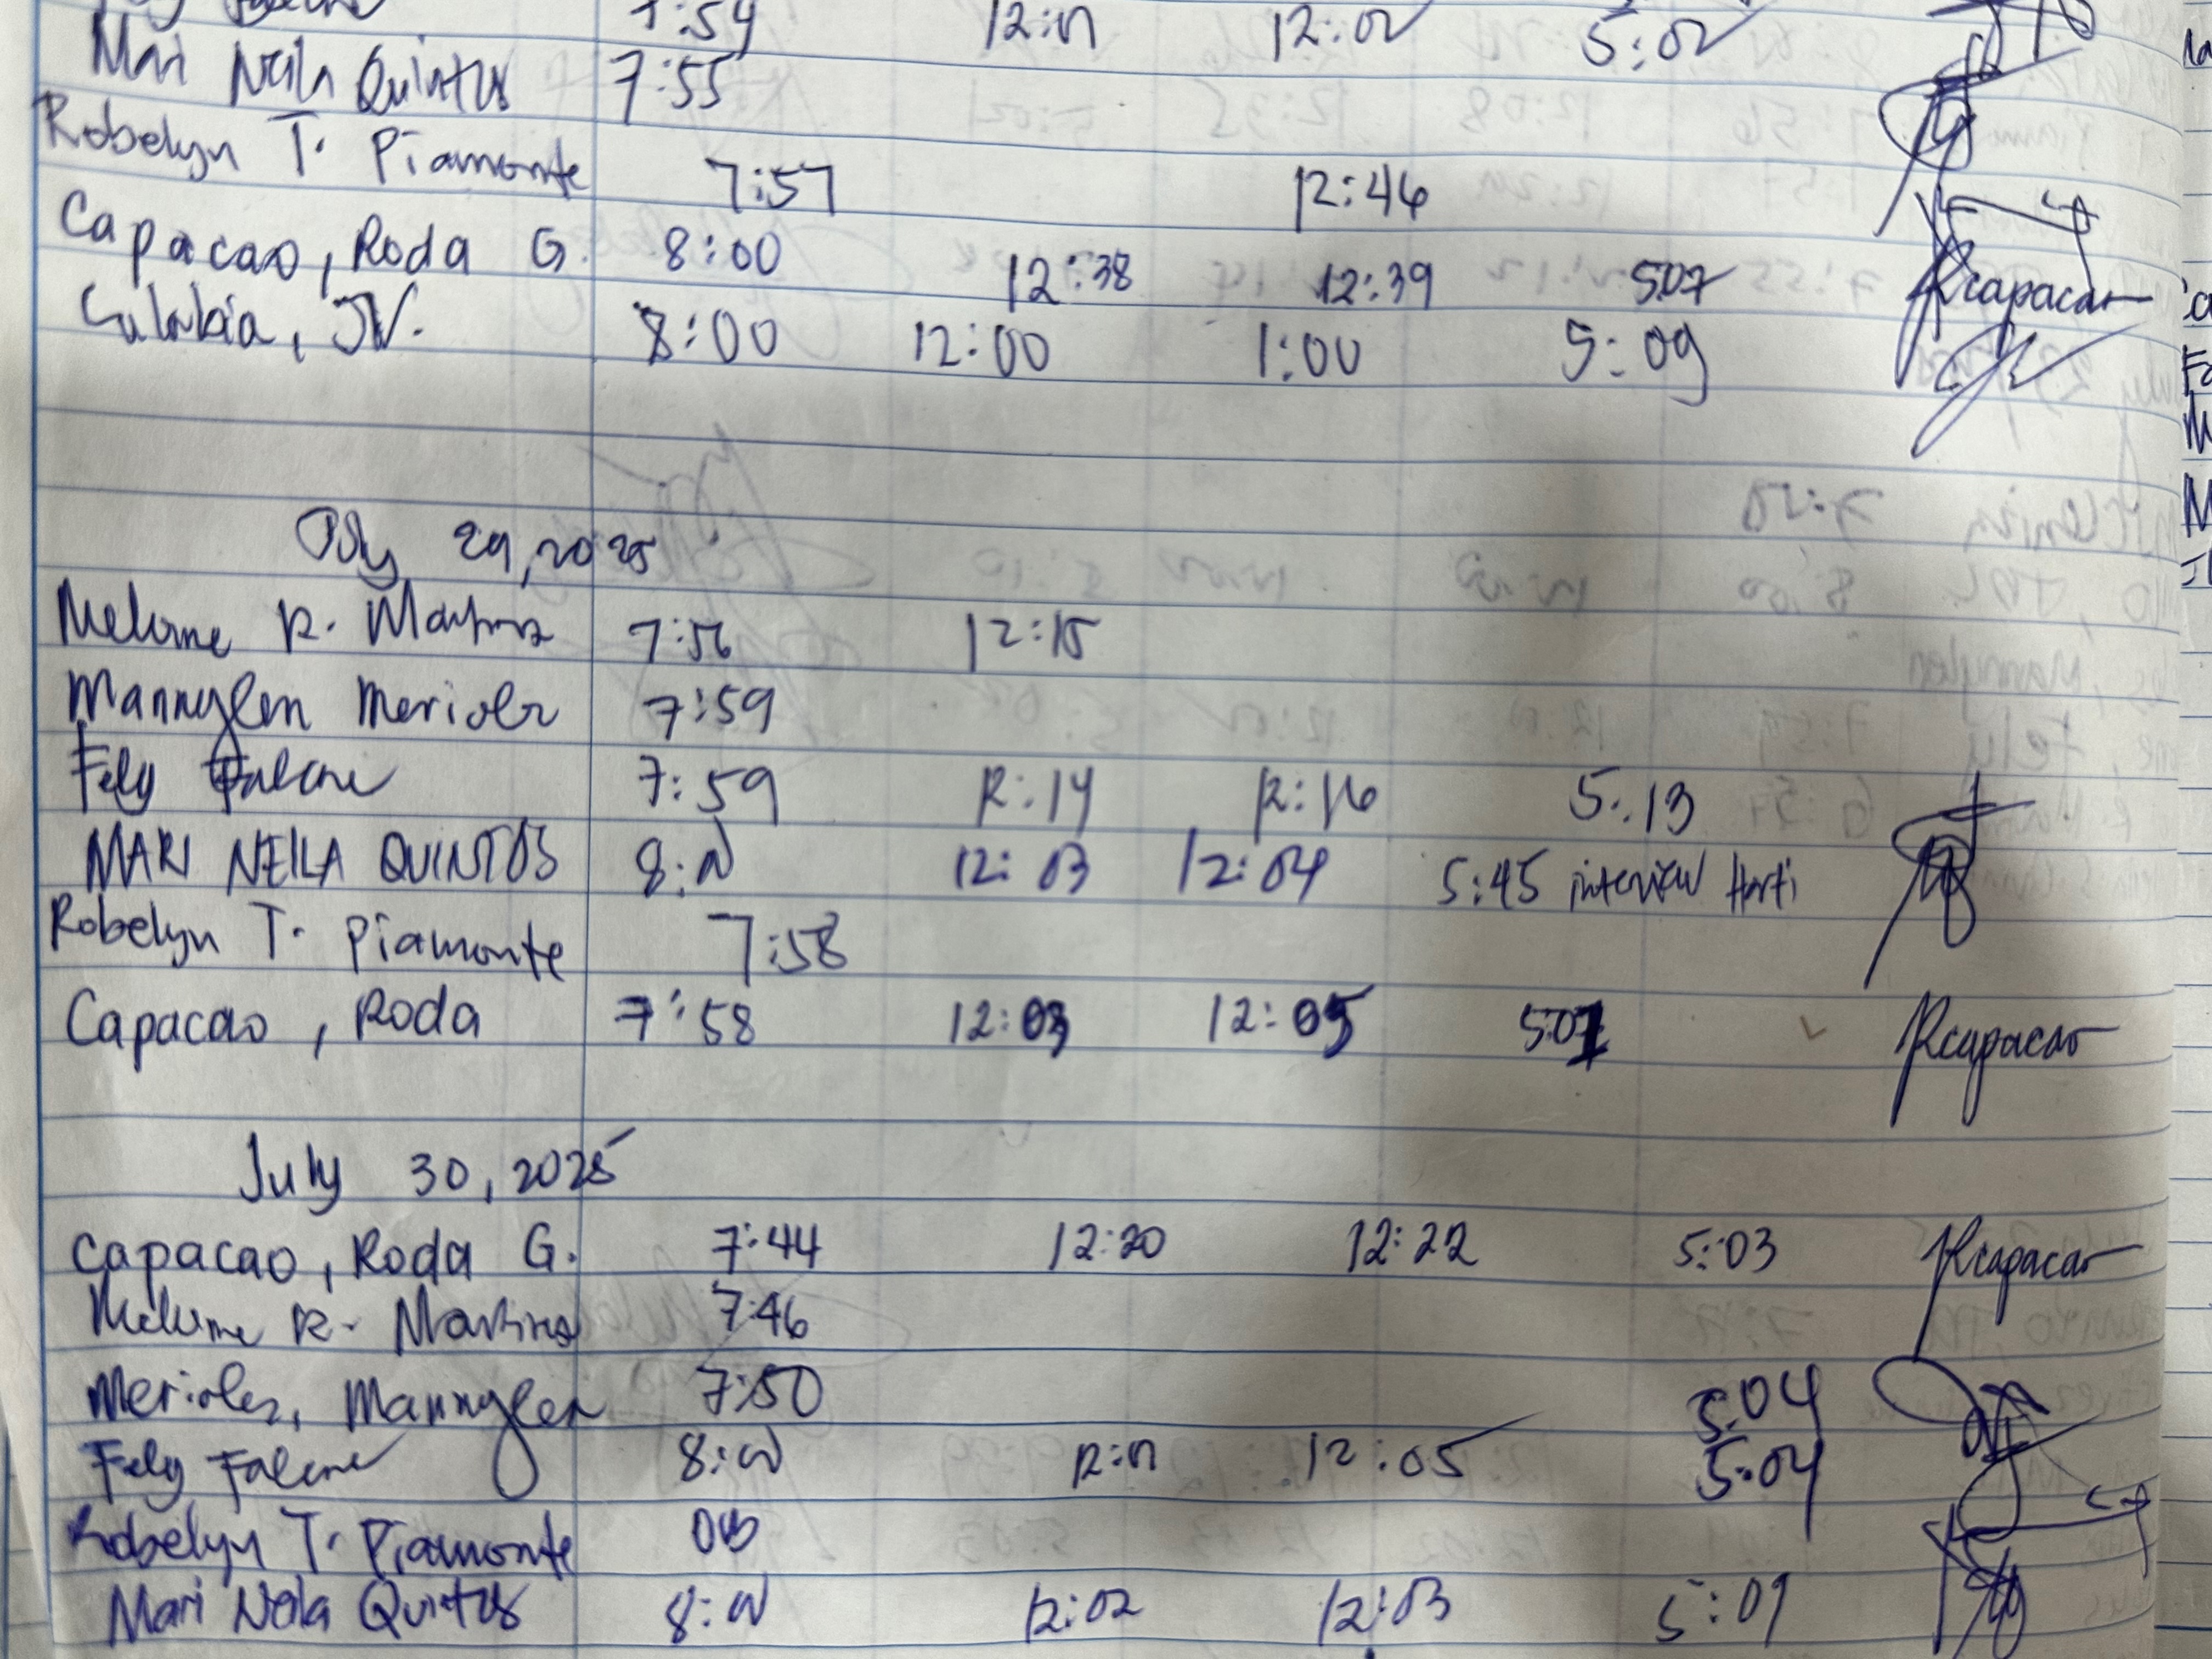 7:59 12:01 12:02 5:02
Mari Neila Quintos 7:55
Robelyn T. Piamonte 7:57 12:46
Capacao, Roda G. 8:00 12:38 12:39 5:07 Rcapacao
JV. 8:00 12:00 1:00 5:09
July 29, 2025
R. 7:56 12:15
Mannylen Merioles 7:59
Fely Falcne 7:59 12:14 12:16 5:13
MARI NEILA QUINTOS 8:00 12:03 12:04 5:45 interview Horti
Robelyn T. Piamonte 7:58
Capacao, Roda 7:58 12:03 12:05 5:07 Rcapacao
July 30, 2025
Capacao, Roda G. 7:44 12:20 12:22 5:03 Rcapacao
R. Martinez 7:46
Merioles, Mannylen 7:50 5:04
Fely 8:00 12:01 12:05 5:04
Robelyn T. Piamonte OB
Mari Neila Quintos 8:00 12:02 12:03 5:09